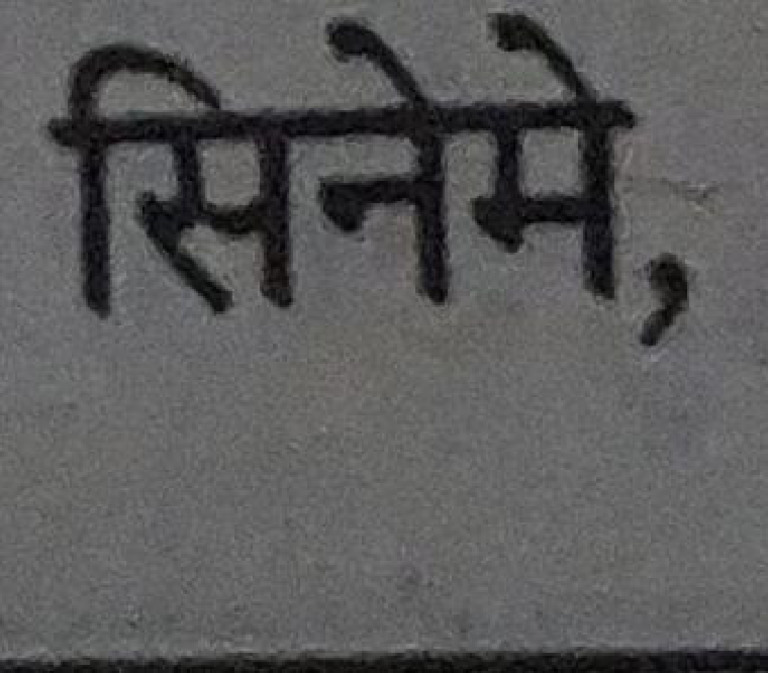 सिनेमे,